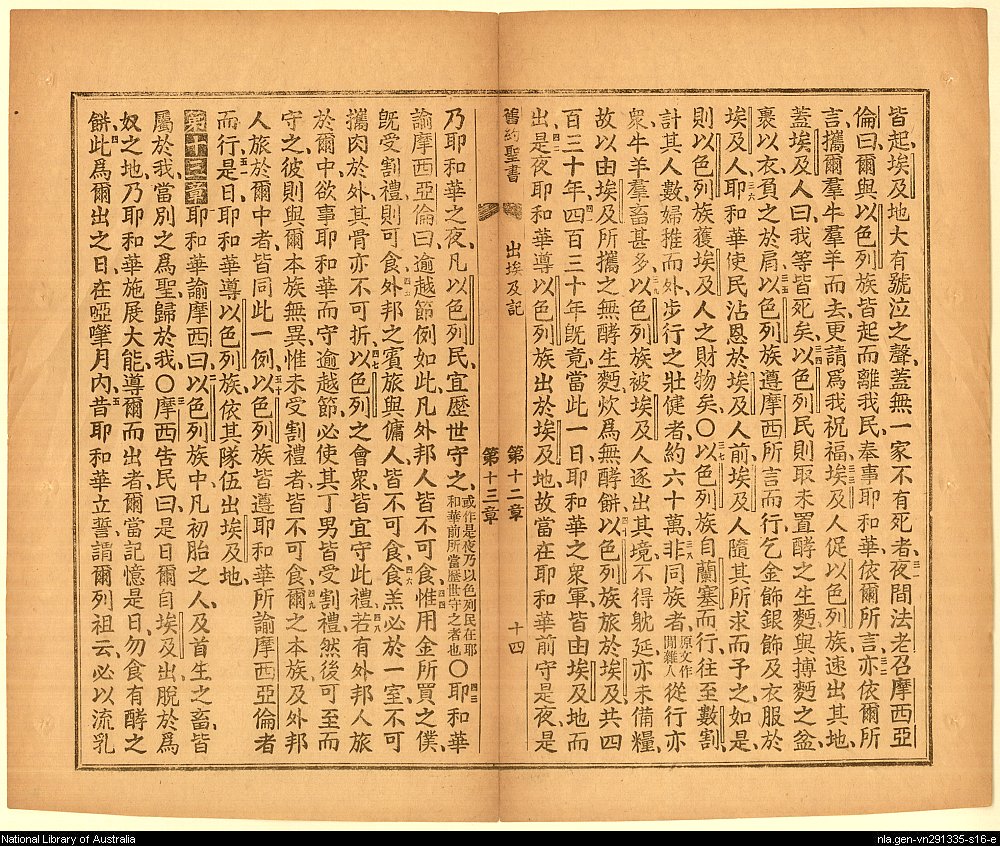 皆起、埃及地大有號泣之聲、蓋無一家不有死者、三一夜間法老召摩西亞
倫曰、爾與以色列族皆起而離我民、奉事耶和華依爾所言、三二亦依爾所
言、攜爾羣牛羣羊而去、更請爲我祝福、三三埃及人促以色列族速出其地、
蓋埃及人曰、我等皆死矣、三四以色列民則取未置酵之生麪、與摶麪之盆、
裹以衣、負之於肩、三五以色列族遵摩西所言而行、乞金飾銀飾及衣服於
埃及人、三六耶和華使民沾恩於埃及人前、埃及人隨其所求而予之、如是、
則以色列族獲埃及人之財物矣、〇三七以色列族自蘭塞而行、往至數割、
計其人數、婦稚而外、步行之壯健者、約六十萬、三八非同族者、原文作閒雜人從行、亦
衆、牛羊羣畜甚多、三九以色列族被埃及人逐出其境、不得躭延、亦未備糧、
故以由埃及所攜之無酵生麪、炊爲無酵餅、四十以色列族旅於埃及、共四
百三十年、四一四百三十年旣竟、當此一日、耶和華之衆軍、皆由埃及地而
出、四二是夜耶和華導以色列族出於埃及地、故當在耶和華前守是夜、是
舊約聖書 出埃及記 第十二章 十四
第十三章
乃耶和華之夜、凡以色列民、宜歷世守之、或作是夜乃以色列民在耶和華前所當歷世守之者也〇四三耶和華
諭摩西亞倫曰、逾越節例如此、凡外邦人皆不可食、四四惟用金所買之僕、
旣受割禮則可食、四五外邦之賓旅與傭人皆不可食、四六食羔必於一室、不可
攜肉於外、其骨亦不可折、四七以色列之會衆、皆宜守此禮、四八若有外邦人旅
於爾中、欲事耶和華而守逾越節、必使其丁男皆受割禮、然後可至而
守之、彼則與爾本族無異、惟未受割禮者、皆不可食、四九爾之本族、及外邦
人旅於爾中者、皆同此一例、五十以色列族皆遵耶和華所諭摩西亞倫者
而行、五一是日耶和華導以色列族、依其隊伍出埃及地、
第十三章 耶和華諭摩西曰、二以色列族中、凡初胎之人、及首生之畜、皆
屬於我、當別之爲聖、歸於我、〇三摩西告民曰、是日爾自埃及出、脫於爲
奴之地、乃耶和華施展大能、導爾而出者、爾當記憶是日、勿食有酵之
餅、四此爲爾出之日、在啞筆月內、五昔耶和華立誓、謂爾列祖云、必以流乳
National Library of Australia
nla.gen-vn291335-s16-e